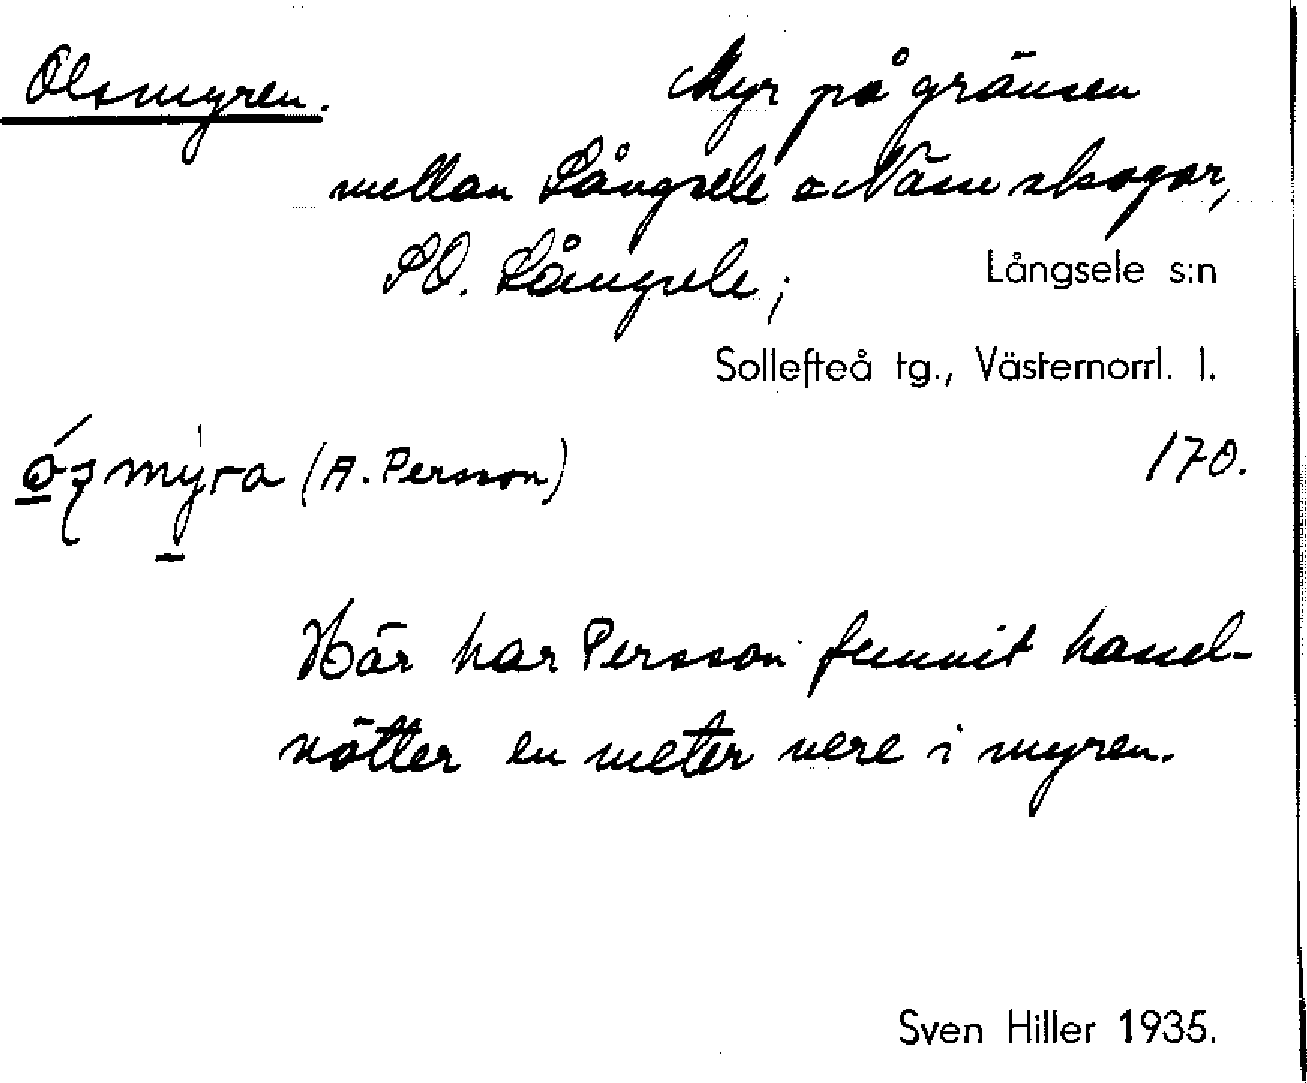 Olsmyren. Myr på gränsen
mellan Långsele o Näsu skogar,
SO. Långsele;
Långsele s:n
Sollefteå tg., Västernorrl. l.
myra (A. Persson) 170.
Här har Persson funnit hassel-
nötter en meter nere i myren.
Sven Hiller 1935.